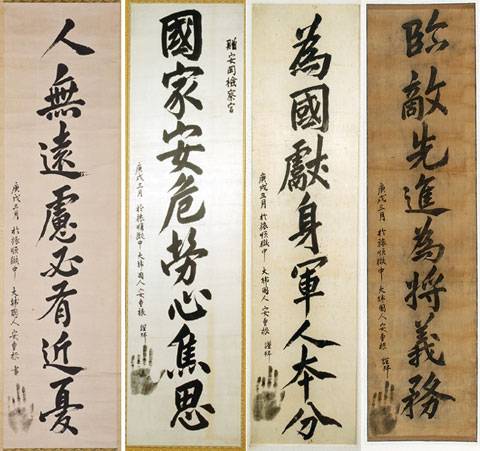 人無遠慮必有近憂
庚戌三月 於旅順獄中 大韓國人 安重根 書
贈安岡檢察官
國家安危勞心焦思
庚戌三月 於旅順獄中 大韓國人 安重根 謹拜
為國獻身軍人本分
庚戌三月 於旅順獄中 大韓國人 安重根 謹拜
臨敵先進為將義務
庚戌三月 於旅順獄中 大韓國人 安重根 謹拜